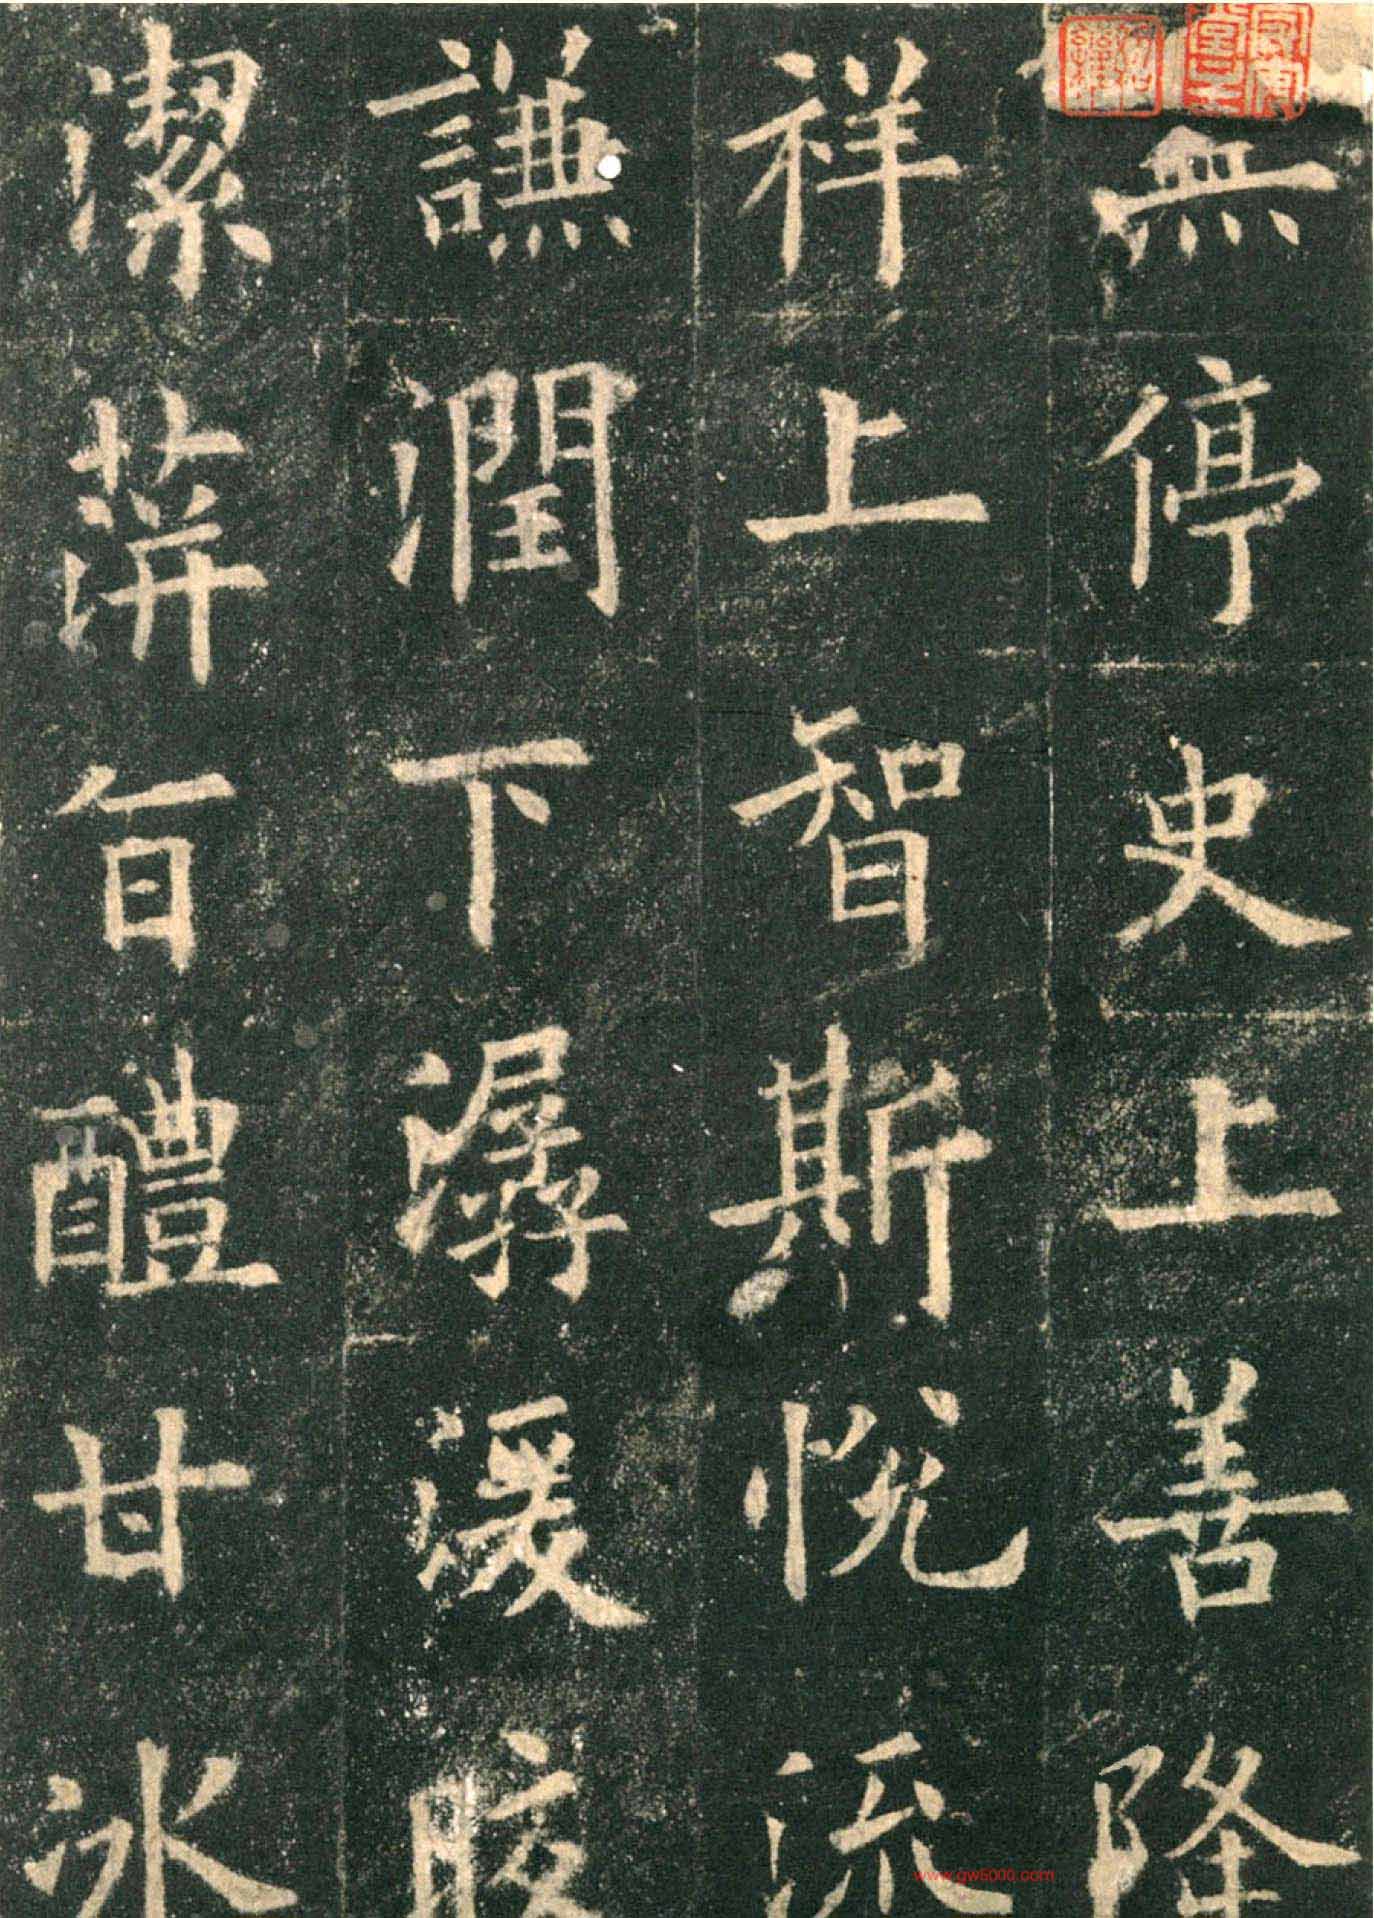 無停史上善降
祥上智斯悅流
謙潤下潺湲皎
潔蓱旨醴甘冰
www.gw5000.com